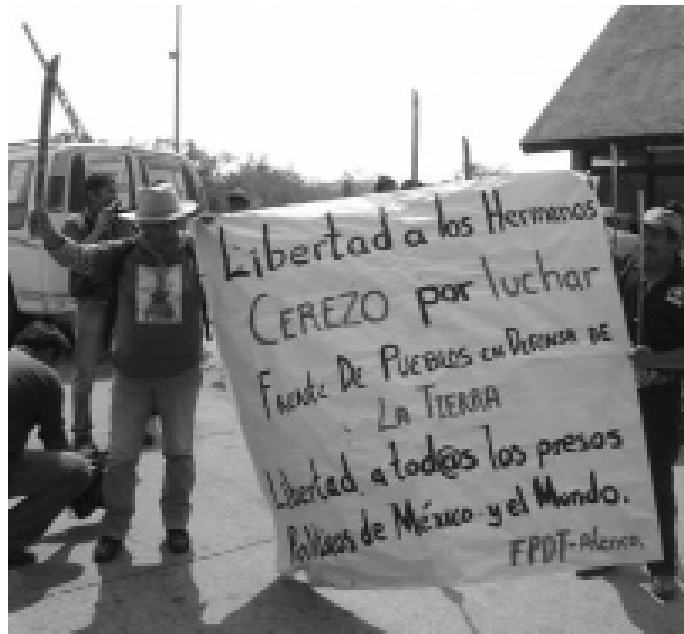 Libertad a los Hermanos
CEREZO por luchar
FRENTE DE PUEBLOS EN DEFENSA DE
LA TIERRA
Libertad a tod@s los presos
Políticos de México y el Mundo.
FPDT-Atenco.